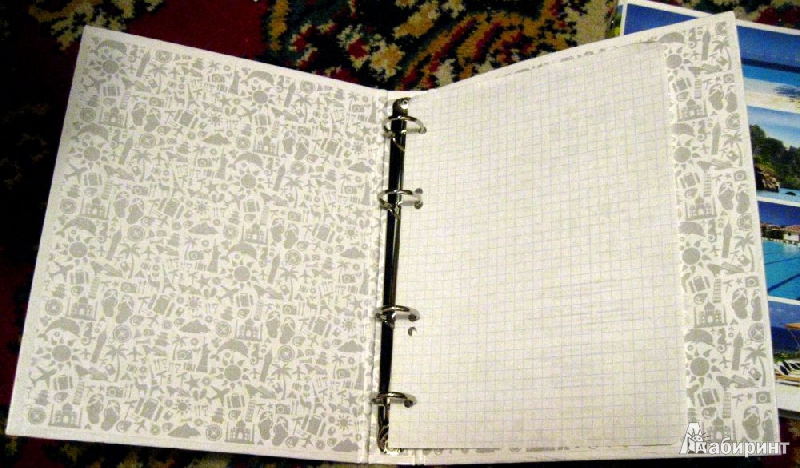 Лабиринт